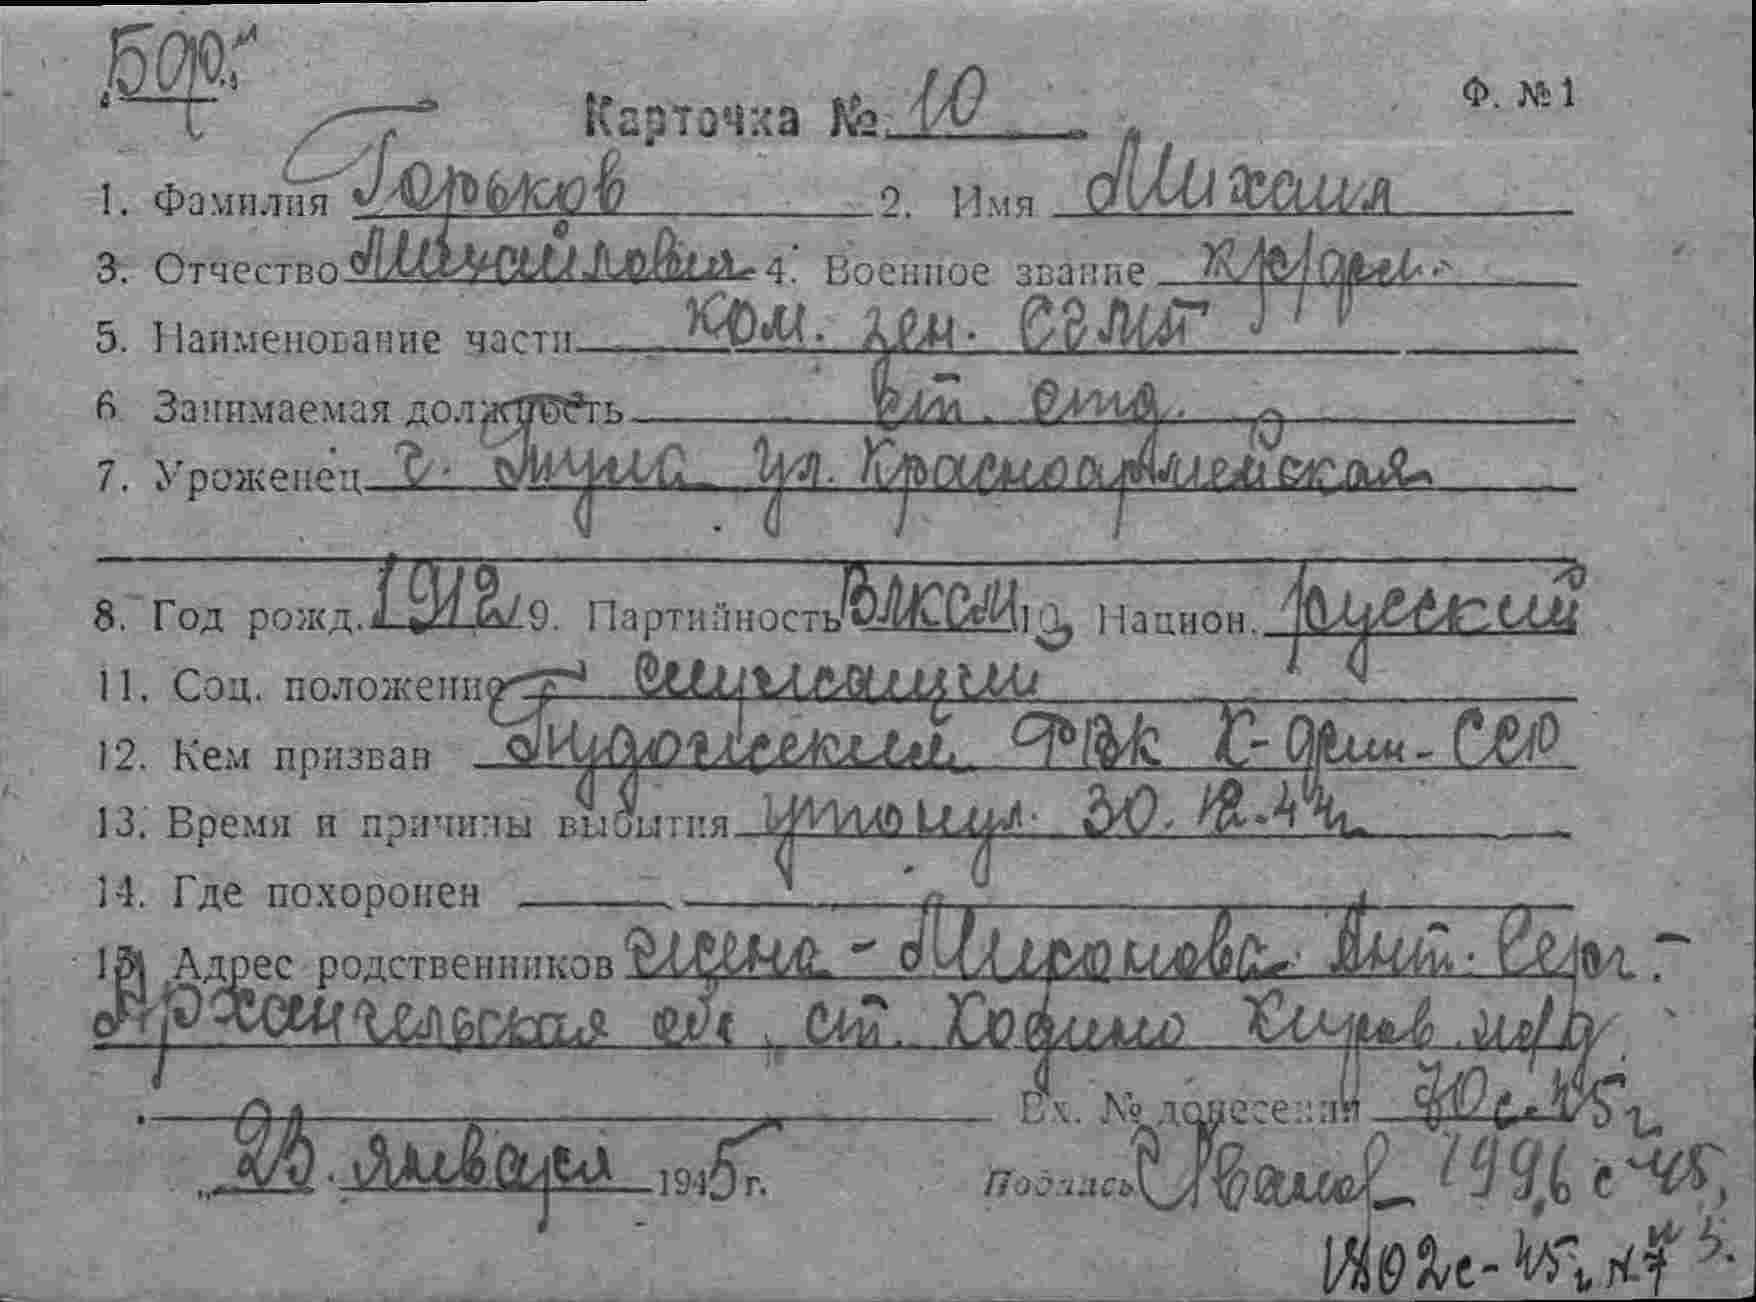 Карточка № 10
Ф. № 1
1. Фамилия Горьков 2. Имя Михаил
3. Отчество Михайлович 4. Военное звание
5. Наименование части ком. зен.
6 Занимаемая должность
7. Уроженец г. Тула ул. Красноармейская
8. Год рожд. 1912 9. Партийность ВЛКСМ 10. Национ. русский
11. Соц. положение служащий
12. Кем призван Пудожский РВК К-Фин-ССР
13. Время и причины выбытия утонул 30.12.44г.
14. Где похоронен
15. Адрес родственников жена - Миронова Ант. Серг. -
Архангельская обл., ст. Кодино Киров. ж/д
Вх. № донесения 70с-45г.
23. января 1945 г. Подпись 1996с-45,